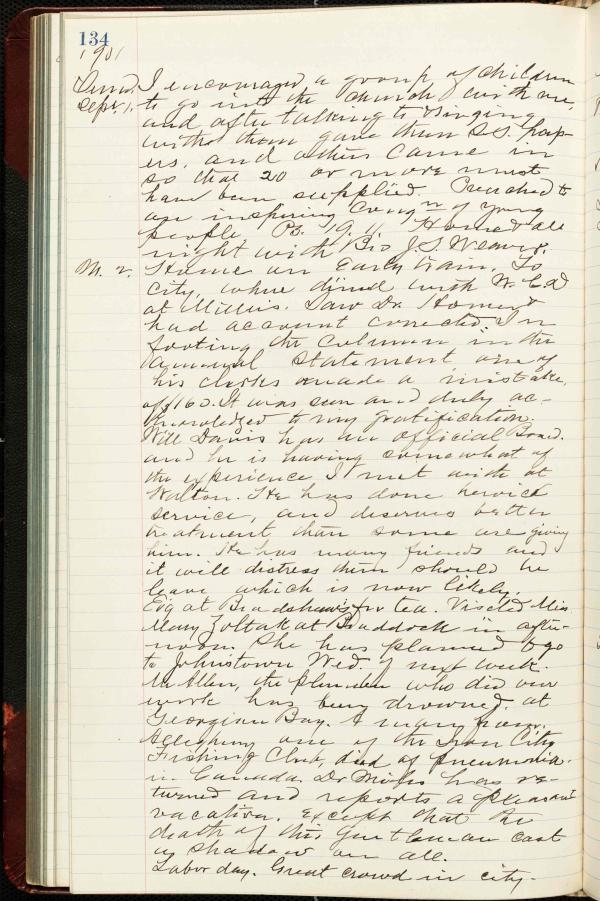 134
1901
Sund. I encouraged a group of children
Sept. 1. to go into the church with me,
and after talking & singing
with them gave them S.S. pap-
ers, and others came in
so that 20 or more must
have been supplied. Preached to
an inspiring Cong'n of young
people Ps. 19. 11. Home all
night with Bro J. S. Weaver.
M. 2. Home on Early train. To
City, where dined with W. C. D
at Millers. Saw Dr. Homer &
had account corrected. In
footing the Column in the
Annual Statement one of
his clerks made a mistake
of $160. It was seen and duly ac-
knowledged to my gratification.
Will Davis has an official Board.
and he is having somewhat of
the experience I met with at
Walton. He has done heroick
service, and deserves better
treatment than some are giving
him. He has many friends and
it will distress them should he
leave which is now likely.
at Bradshaw's for tea. Visited Miss
Mary Zoltak at Braddock in after-
noon. She has planned to go
to Johnstown Wed. of next week.
Mr Allen, the plumber who did our
work has been drowned at
Georgian Bay. A man from
Allegheny one of the Iron City
Fishing Club, died of pneumonia
in Canada. Dr Miles has re-
turned and reports a pleasant
vacation. Except that the
death of this gentleman cast
a shadow on all.
Labor day. Great crowd in city.